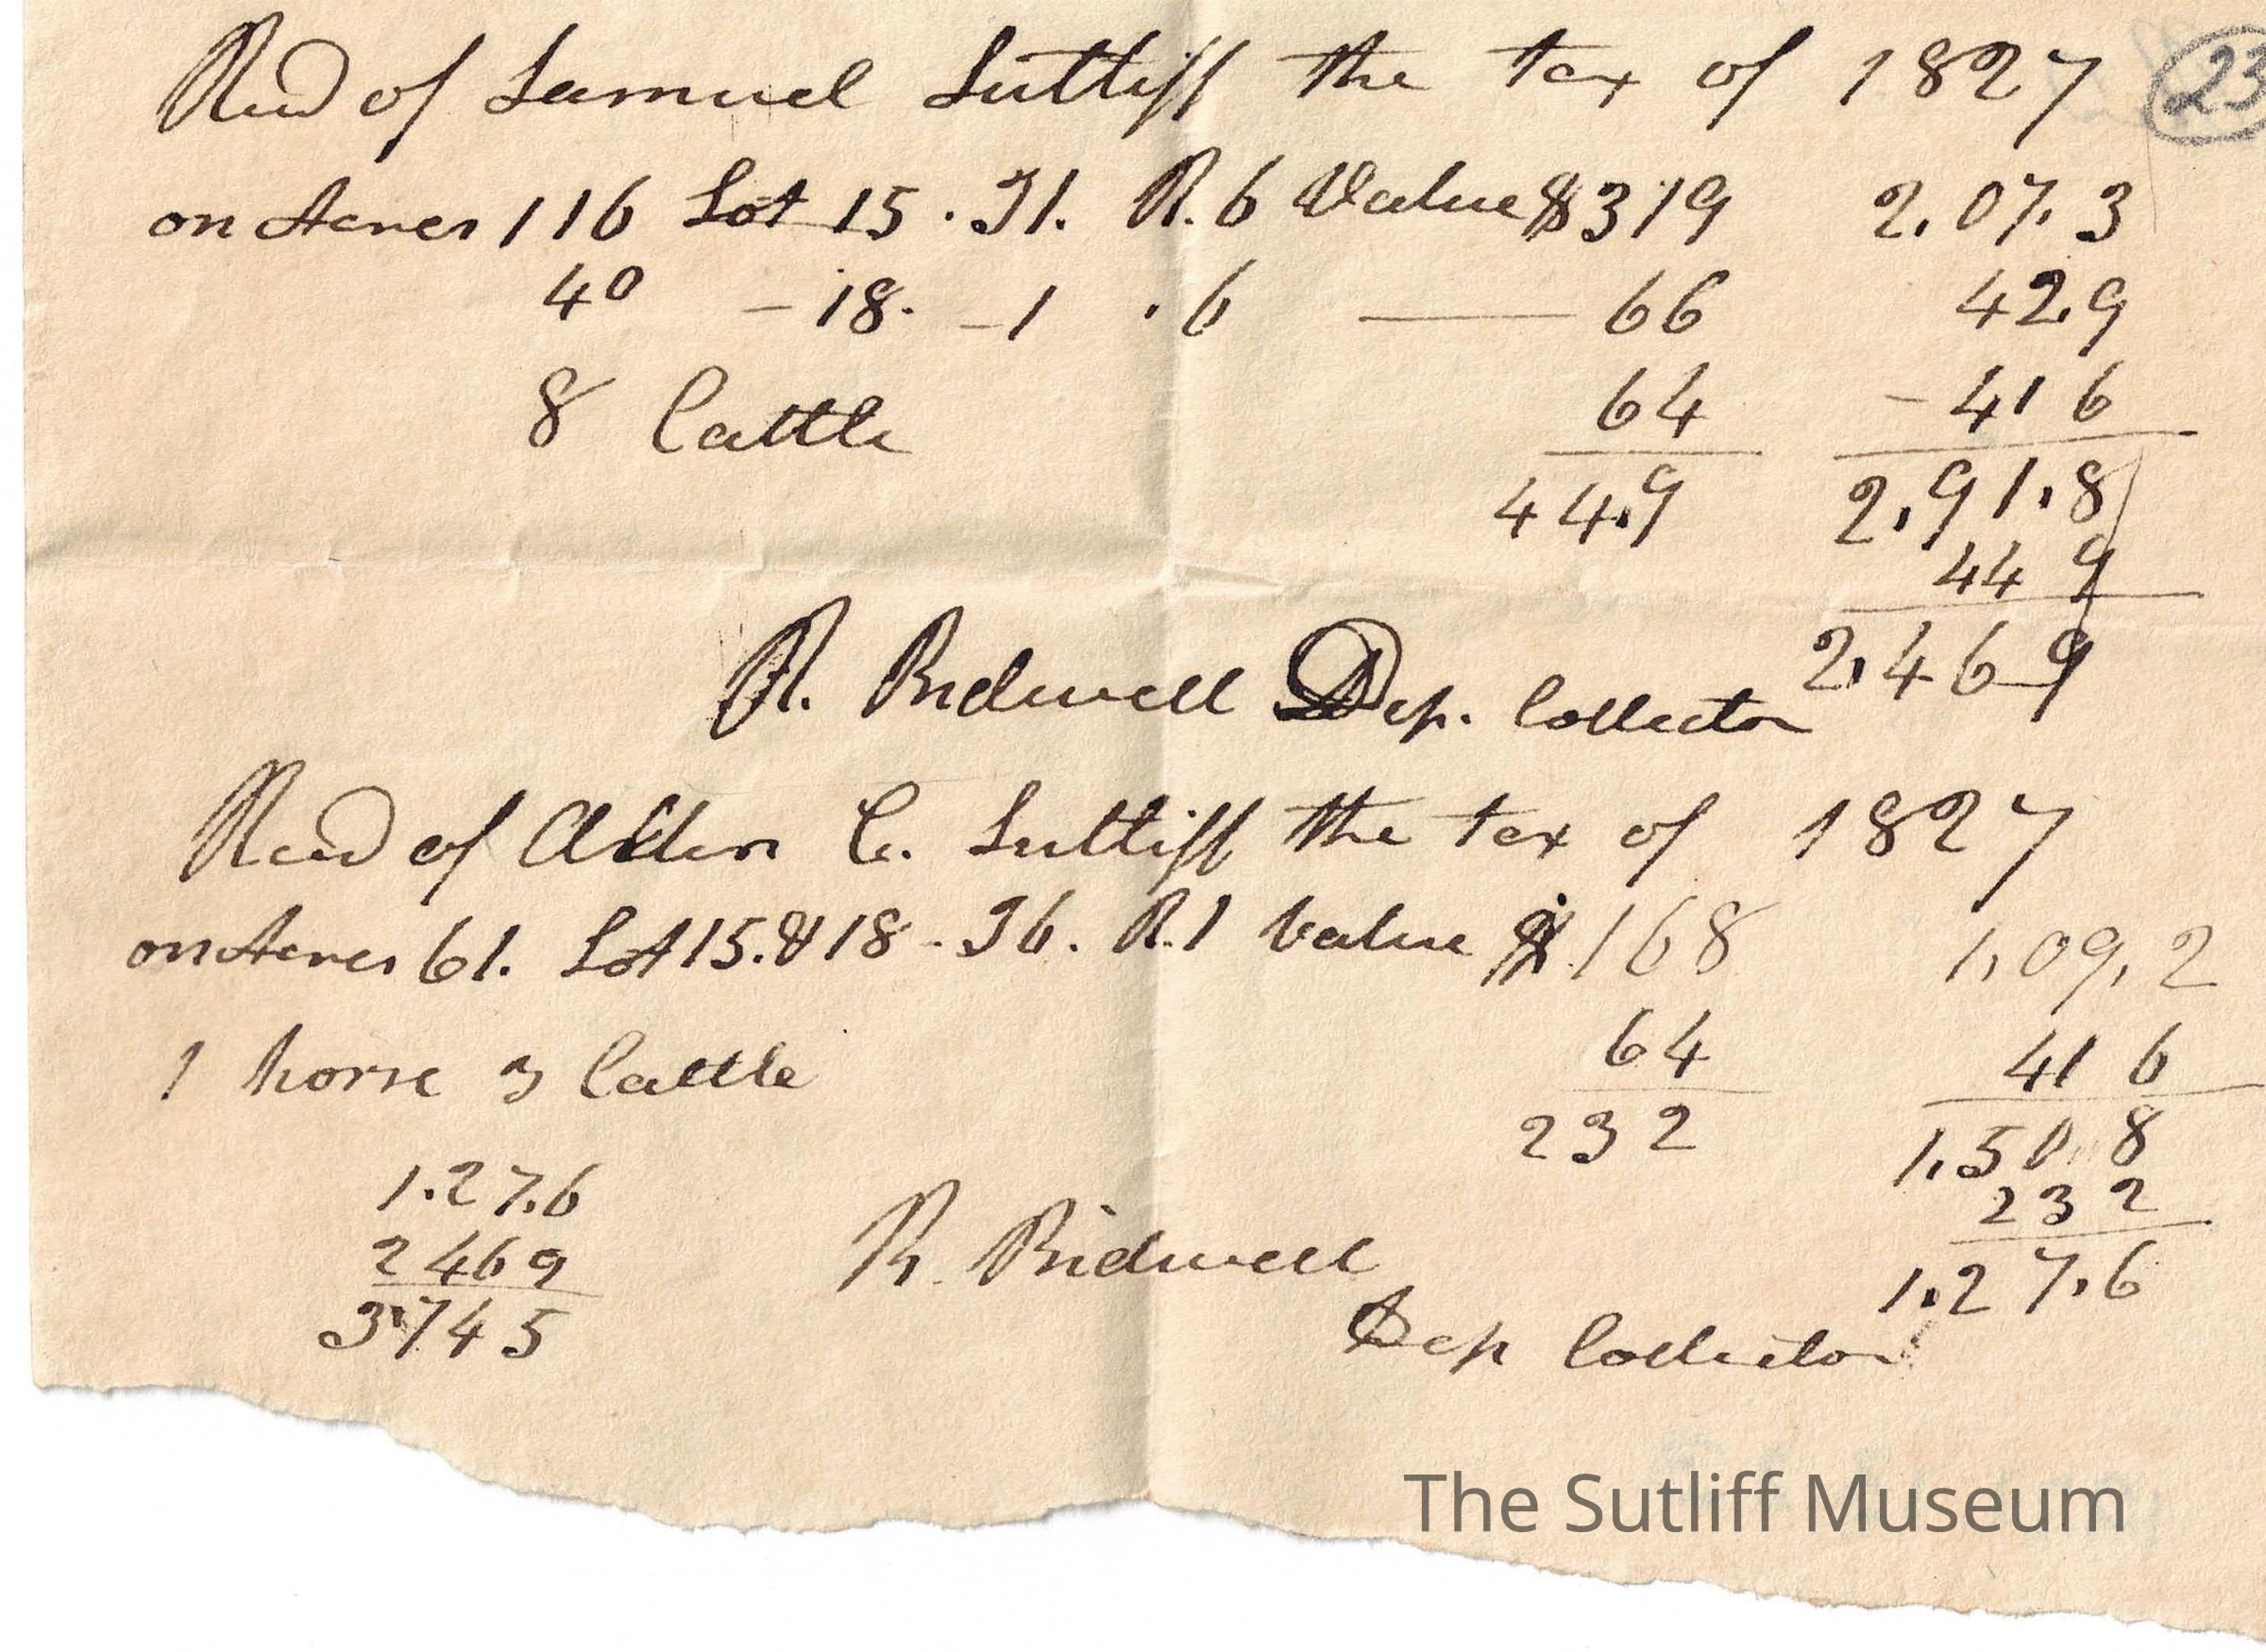 Recd of Samuel Sutliff the tax of 1827 23
on Acres 116 Lot 15 . T1. R. 6 Value $319 2,07.3
40 – 18. – 1 . 6 —— 66 42.9
8 Cattle 64 – 41 6
44.9 2,91.8
44 9
2,46 9
R. Bidwell Dep. Collector
Recd of Alden C. Sutliff the tax of 1827
on Acres 61. Lot 15. & 18 - T6. R.1 Value $168 1,09,2
1 horse 3 Cattle 64 41 6
232 1,50 8
23 2
1.27.6 1,27,6
2 46 9
3,74 5
R. Bidwell
Dep Collector
The Sutliff Museum